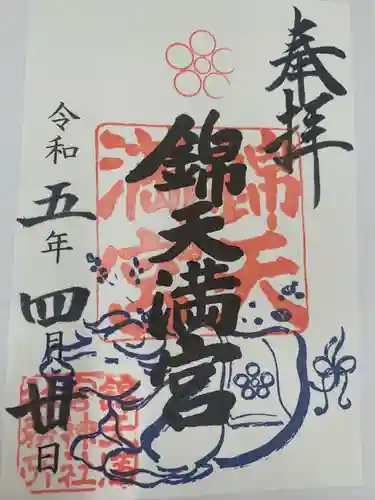 奉拝
錦天満宮
錦天
満宮
令和五年四月廿日